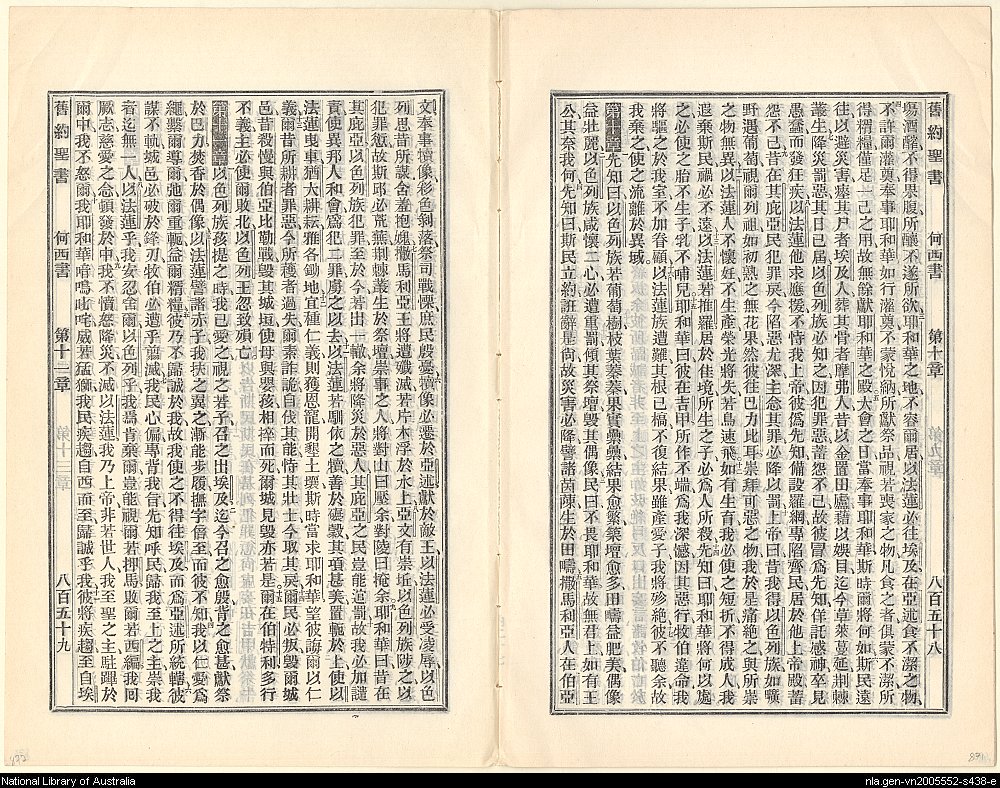 舊約聖書 何西書 第十章 八百五十八
酒醪不得果腹所釀不遂所欲耶和華之地不容爾居以法蓮必往埃及在亞述食不潔之物
不許爾灌奠奉事耶和華如行灌奠不蒙悅納所獻祭品視若喪家之物凡食之者俱蒙不潔所
得糈糧僅足一己之用故無餘獻耶和華之殿大會之日當奉事耶和華斯時爾將何如斯民遠
往以避災害瘞其尸者埃及人葬其骨者摩弗人昔以金置田廬藉以娛目迄今草萊蔓延荆棘
叢生降災罰惡其日已屆以色列族必知之因犯罪惡蓄怨不已故彼冒爲先知佯託感神卒見
愚蠢而發狂疾以法蓮他求應援不恃我上帝彼僞先知備設羅網專陷齊民居於他上帝殿蓄
怨不已昔在其庇亞民犯罪戾今陷惡尤深主念其罪必降以罰上帝曰昔我得以色列族如曠
野遇葡萄視爾列祖如初熟之無花果然彼往巴力比耳崇拜可惡之物我於是痛絶之與所崇
之物無異以法蓮人不懷妊不生產榮光將失若鳥速飛如有生育我必使之短折不得成人我
遐棄斯民禍必不遠以法蓮若推羅居於佳境所生之子必爲人所殺先知曰耶和華將何以處
之必使之胎不生子乳不哺兒耶和華曰彼在吉甲所作不端爲我深憾因其惡行牧伯違命我
將驅之於我室不加眷顧以法蓮族遭難其根已槁不復結果雖產愛子我將殄絶彼不聽余故
我棄之使之流離於異域
第十章 先知曰以色列族若葡萄樹枝葉蓁蓁果實纍纍結果愈繁祭壇愈多田疇益肥美偶像
益壯麗以色列族咸懷二心必遭重罰傾其祭壇毀其偶像民曰不畏耶和華故無君上如有王
公其奈我何先知曰斯民立約誑辭是尚故災害必降譬諸茵蔯生於田疇撒馬利亞人在伯亞
文奉事犢像彩色剝落祭司戰慄庶民殷憂犢像必遷於亞述獻於敵王以法蓮必受凌辱以色
列思昔所謀含羞抱媿撒馬利亞王將遭殲滅若片木浮於水上亞文有崇坵以色列族陟之以
犯罪愆故斯邱必荒蕪荆棘叢生於祭壇崇事之人將對山曰壓余對陵曰掩余耶和華曰昔在
其庇亞以色列族犯罪至於今若出一轍余將降災於惡人其庇亞之民豈能逭罰故我必加譴
責使異邦人和會爲犯二罪虜之以去以法蓮若馴依之犢善於碾穀其項甚美置軛於上使以
法蓮曳車猶大耕耘雅各鋤地宜種仁義則獲恩寵開墾土壤斯時當求耶和華望彼誨爾以仁
義爾昔所耕者罪惡今所穫者過失爾素詐詭自伐其能恃其壯士今取其戾爾民必叛毀爾城
邑昔殺慢與伯亞比勒戰毀其城垣使母與嬰孩相捽而死爾城見毀亦若是爾在伯特利多行
不義主必使爾敗北以色列王忽致殞亡
第十一章 以色列族孩提之時我已愛之視之若子召之出埃及迄今召之愈殷背之愈甚獻祭
於巴力焚香於偶像以法蓮譬諸赤子我扶之翼之漸能步履撫字倍至而彼不知我以仁愛爲
繩繫爾導爾弛爾重軛益爾糈糧彼乃不歸誠於我故我使之不得往埃及而爲亞述所統轄彼
謀不軌城邑必破於鋒刃牧伯必遭乎翦滅我民心偏專背我旨先知呼民歸我至上之主崇我
者迄無一人以法蓮乎我安忍舍爾以色列乎我爲肯棄爾豈能視爾若押馬敗爾若西編我回
厥志慈愛之念頓發於中我不憤怒降災不滅以法蓮我乃上帝非若世人我至聖之主駐蹕於
爾中我不怒爾我耶和華喑嗚叱咤威若猛獅我民疾趨自西而至歸誠乎我彼將疾趨至自埃
舊約聖書 何西書 第十一章 八百五十九
National Library of Australia
nla.gen-vn2005552-s438-e